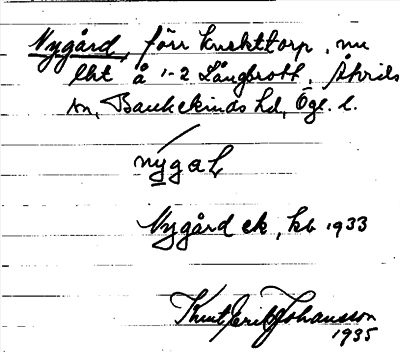 Nygård, förr knekttorp, nu
lht å 1-2 Långbrott, Åtvids
sn, Bankekinds hd, Ögl. l.
nygaɭ
Nygård ek, kb 1933
Knut Erik Johansson
1935